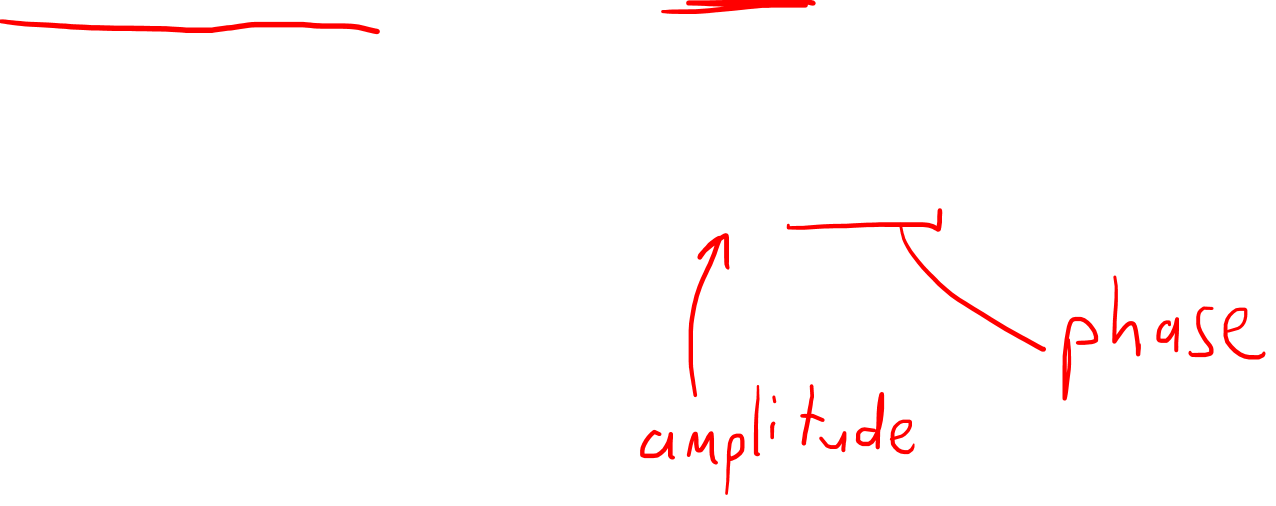 phase
amplitude